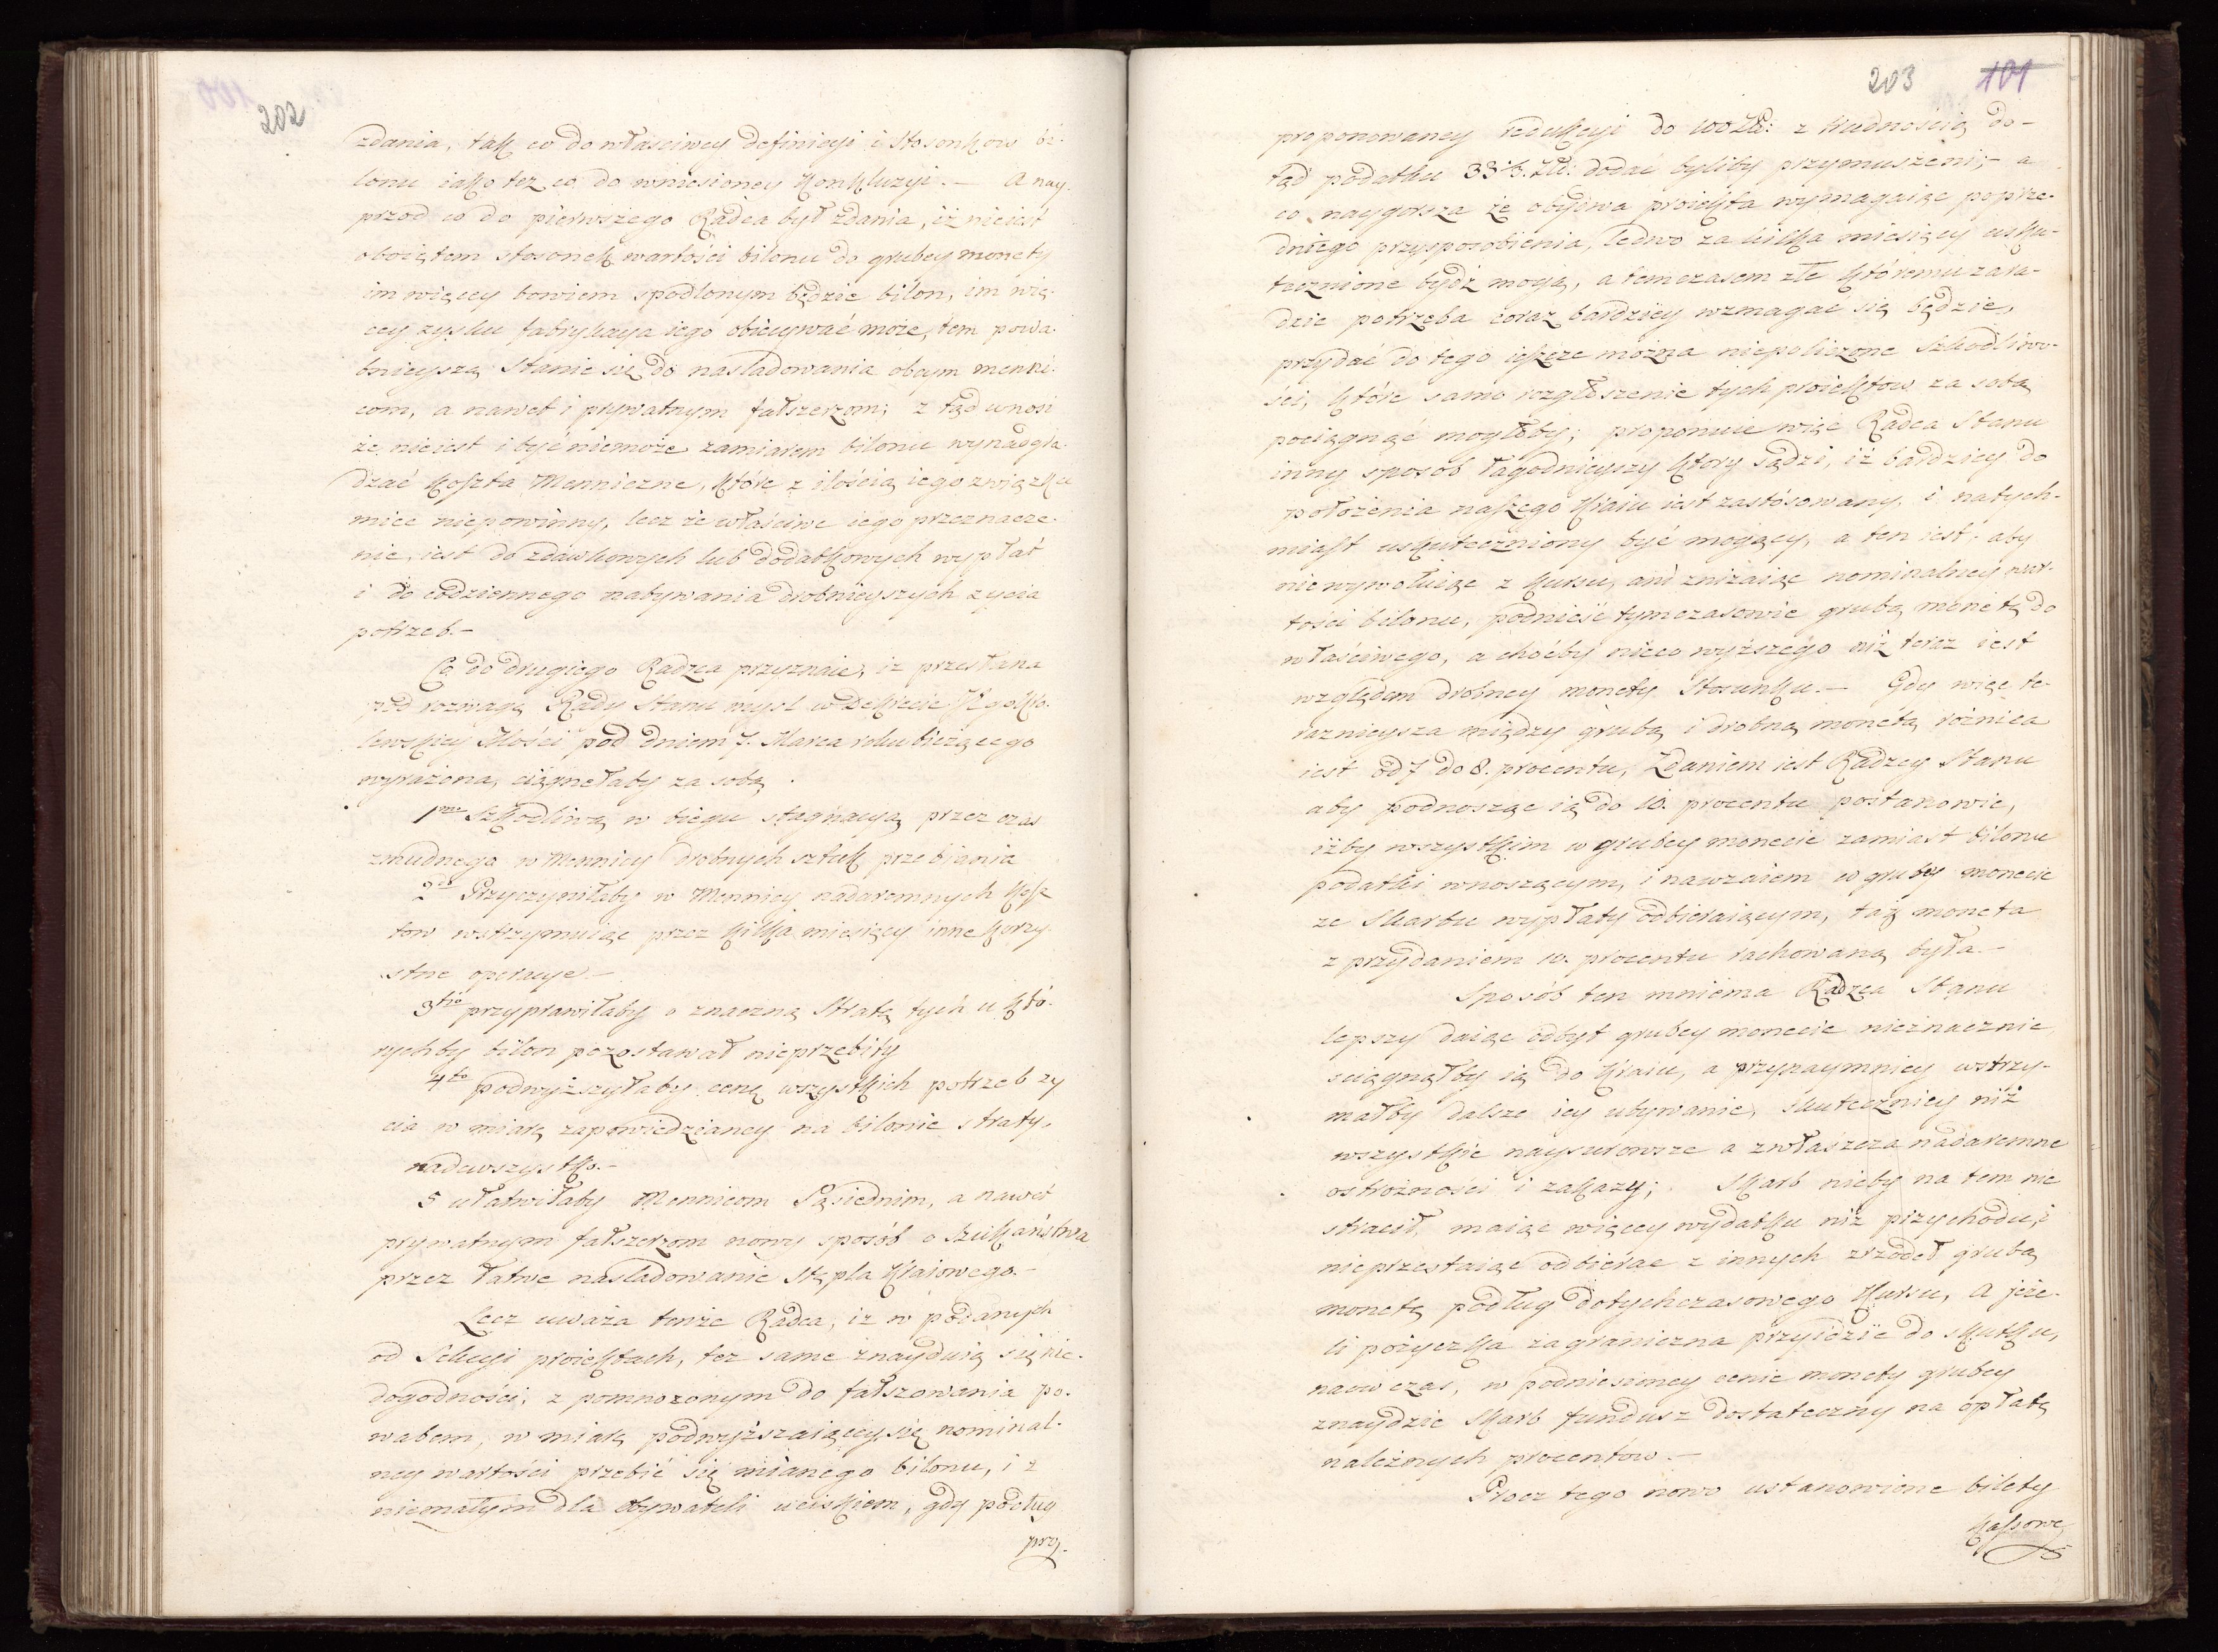 202
zdania, tak co do właściwey definicyi i stosonkow bi-
lonu iako też co do wniesioney konkluzyi. — A nay-
przod co do pierwszego Radca był zdania, iż nieiest
oboiętem stosonek wartości bilonu do grubey monety
im więcey bowiem spodlonym będzie bilon, im wię-
cey zysku fabrykacya iego obiecywać może, tem powa-
bnieyszą stanie się do nasladowania obcym menni-
com, a nawet i prywatnym fałszerzom; z tąd wnosi
że nieiest i być niemoże zamiarem bilonu wynadgra-
dzać koszta Mennicze, które z ilością iego związku
mieć niepowinny, lecz że właściwe iego przeznacze-
nie, iest do zdawkowych lub dodatkowych wypłat
i do codziennego nabywania drobnieyszych życia
potrzeb. —
Co do drugiego Radzca przyznaie, iż przesłana
pod rozwagę Rady Stanu mysl w Dekrecie JEgo Kró-
lewskiey Mości pod dniem 7. Marca roku bieżącego
wyrażona, ciągnełaby za sobą
1mo Szkodliwą w biegu stagnacyą przez czas
żmudnego w Mennicy drobnych sztuk przebiiania
2do Przyczyniłaby w Mennicy nadaremnych kosz
tow wstrzymuiąc przez kilka miesięcy inne korzy-
stne operacye. —
3tio przyprawiłaby o znaczną stratę tych u któ-
rychby bilon pozostawał nieprzebity
4to podwyższyłaby cenę wszystkich potrzeb ży
cia w miarę zapowiedzianey na bilonie straty,
nadewszystko. —
5 ułatwiłaby Mennicom Sąsiednim, a nawet
prywatnym fałszerzom nowy sposób oszukaństwa
przez łatwe nasladowanie stępla kraiowego. —
Lecz uważa tenże Radca, iż w podanych
od Sekcyi proiektach, też same znayduią się nie-
dogodności, z pomnożonym do fałszowania po-
wabem, w miarę podwyższaiącey się nominal-
ney wartości przebić się mianego bilonu, i z
niemałym dla obywateli uciskiem, gdy podług
prz-
203 101
proponowaney redukcyi do 100 Zł: z trudnością do-
tąd podatku 33⅓. Zł: dodać byliby przymuszeni; — a
co naygorsza że obydwa proiekta wymagaiąc poprze-
dniego przysposobienia, ledwo za kilka miesięcy usku-
tecznione bydź mogą, a temczasem złe któremu zara-
dzić potrzeba coraz bardziey wzmagać się będzie,
przydać do tego ieszcze można niepoliczone szkodliwo-
ści, które samo rozgłoszenie tych proiektow za sobą
pociągnąć mogłoby; proponuie więc Radca Stanu
inny sposób łagodnieyszy ktory sądzi, iż bardziey do
położenia naszego kraiu iest zastósowany, i natych-
miast uskuteczniony być mogący, a ten iest: aby
niewywołuiąc z kursu, ani zniżaiąc nominalney war-
tości bilonu, podnieść tymczasowie grubą monetę do
właściwego, a choćby nieco wyższego niż teraz iest
względem drobney monety stosunku. — Gdy więc te-
raznieysza między grubą i drobną monetą różnica
iest od 7 do 8. procentu, Zdaniem iest Radzcy Stanu
aby podnosząc ią do 10. procentu postanowić,
iżby wszystkim w grubey monecie zamiast bilonu
podatki wnoszącym, i nawzaiem w grubey monecie
ze skarbu wypłaty odbieraiącym, taż moneta
z przydaniem 10. procentu rachowaną była. —
Sposób ten mniema Radzca Stanu
lepszy daiąc odbyt grubey monecie nieznacznie
sciągnąłby ią do kraiu, a przynaymniey wstrzy-
małby dalsze iey ubywanie, skuteczniey niż
wszystkie naysurowsze a zwłaszcza nadaremne
ostrożności i zakazy; Skarb nicby na tem nie
stracił, maiąc więcey wydatku niż przychodu, i
nieprzestaiąc odbierać z innych źrzodeł grubą
monetę podług dotychczasowego kursu, A jeże-
li pożyczka zagraniczna przyidzie do skutku,
naowczas, w podniesioney cenie monety grubey
znaydzie skarb fundusz dostateczny na opłatę
należnych procentow. —
Procz tego nowo ustanowione bilety
kassowe